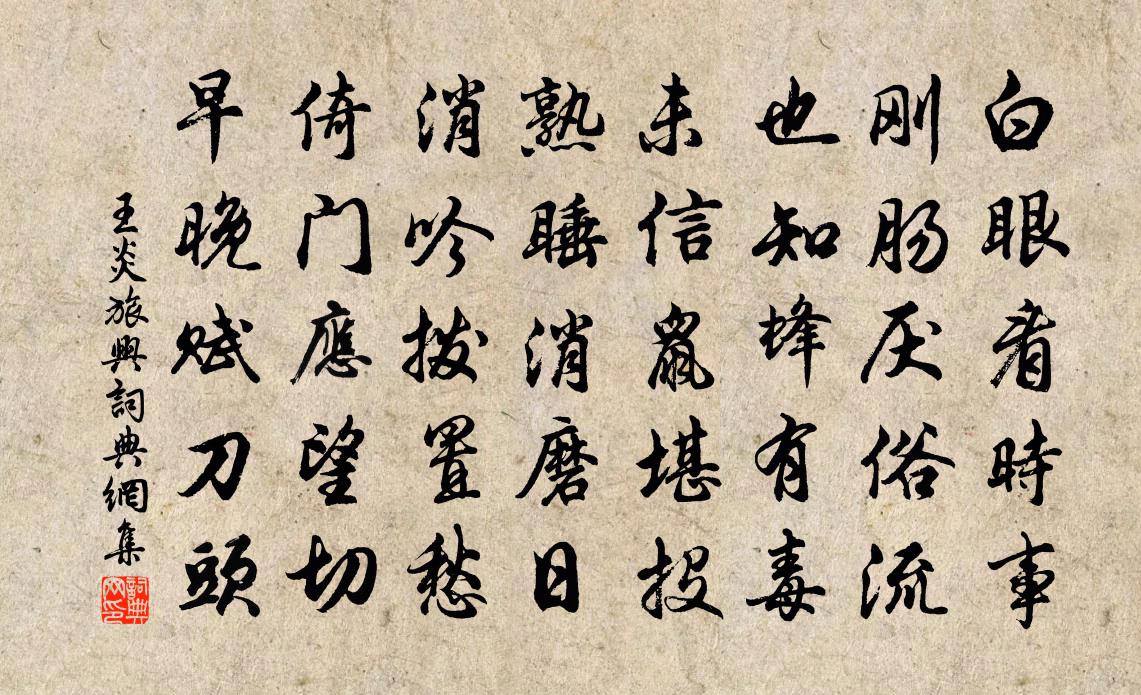 白眼看時事
刚肠厌俗流
也知蜂有毒
未信鼠堪投
熟睡消磨日
消吟拨置愁
倚门應望切
早晚赋刀頭
王炎旅興詞典網集
詞典网印